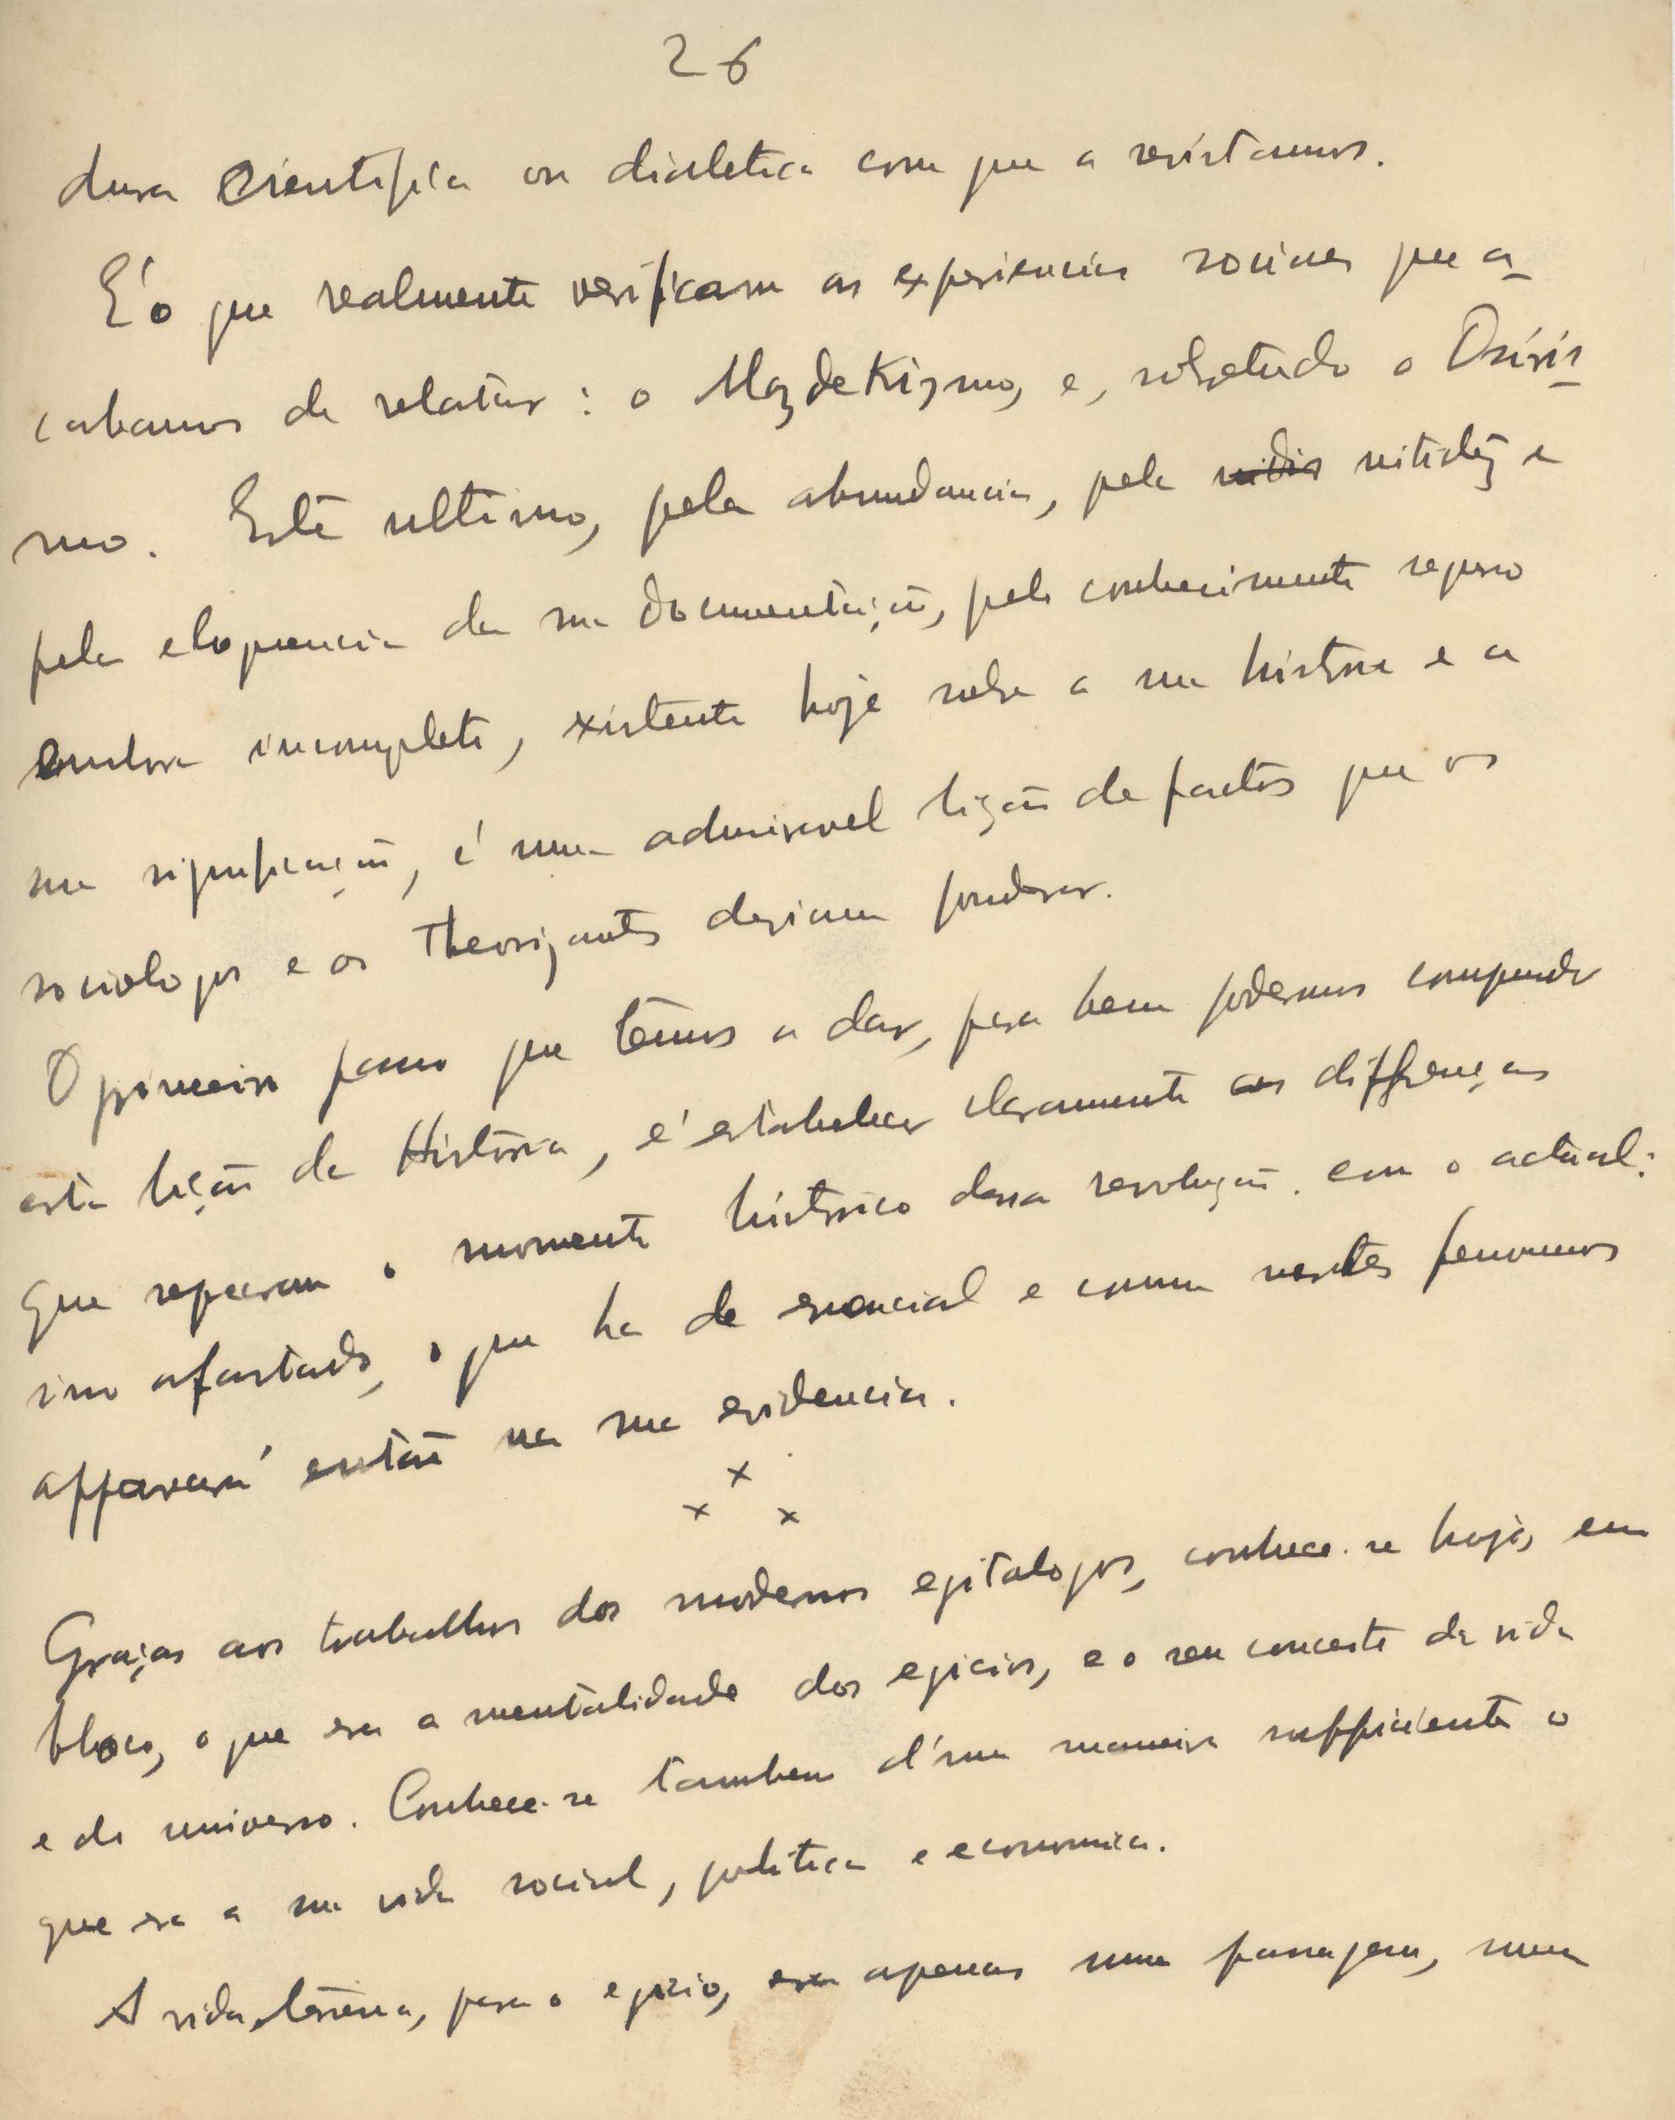 26
dura scientifica ou dialetica com que a revistamos.
E' o que realmente verificam as experiencias sociaes que a-
cabamos de relatar: o Mazdekizmo, e, sobretudo o Osiris-
mo. Este ultimo, pela abundancia, pela nitidez e
pela eloquencia da sua documentação, pelo conhecimento seguro
embora incompleto, existente hoje sobre a sua historia e a
sua significação, é uma admiravel lição de factos que os
sociologos e os theorizantes deviam ponderar.
O primeiro passo que temos a dar, para bem podermos comprender
esta lição da Historia, é estabelecer claramente as differenças
que separam o momento historico dessa revolução com o actual:
isso afastado, o que ha de essencial e comum nestes fenomenos
apparecerá então na sua evidencia.
x
x x
Graças aos trabalhos dos modernos egitologos, conhece-se hoje, em
bloco, o que era a mentalidade dos egicios, e o seu conceito da vida
e do universo. Conhece-se tambem d'uma maneira sufficiente o
que era a sua vida social, politica e economica.
A vida terrena, para o egicio, era apenas uma passagem, uma